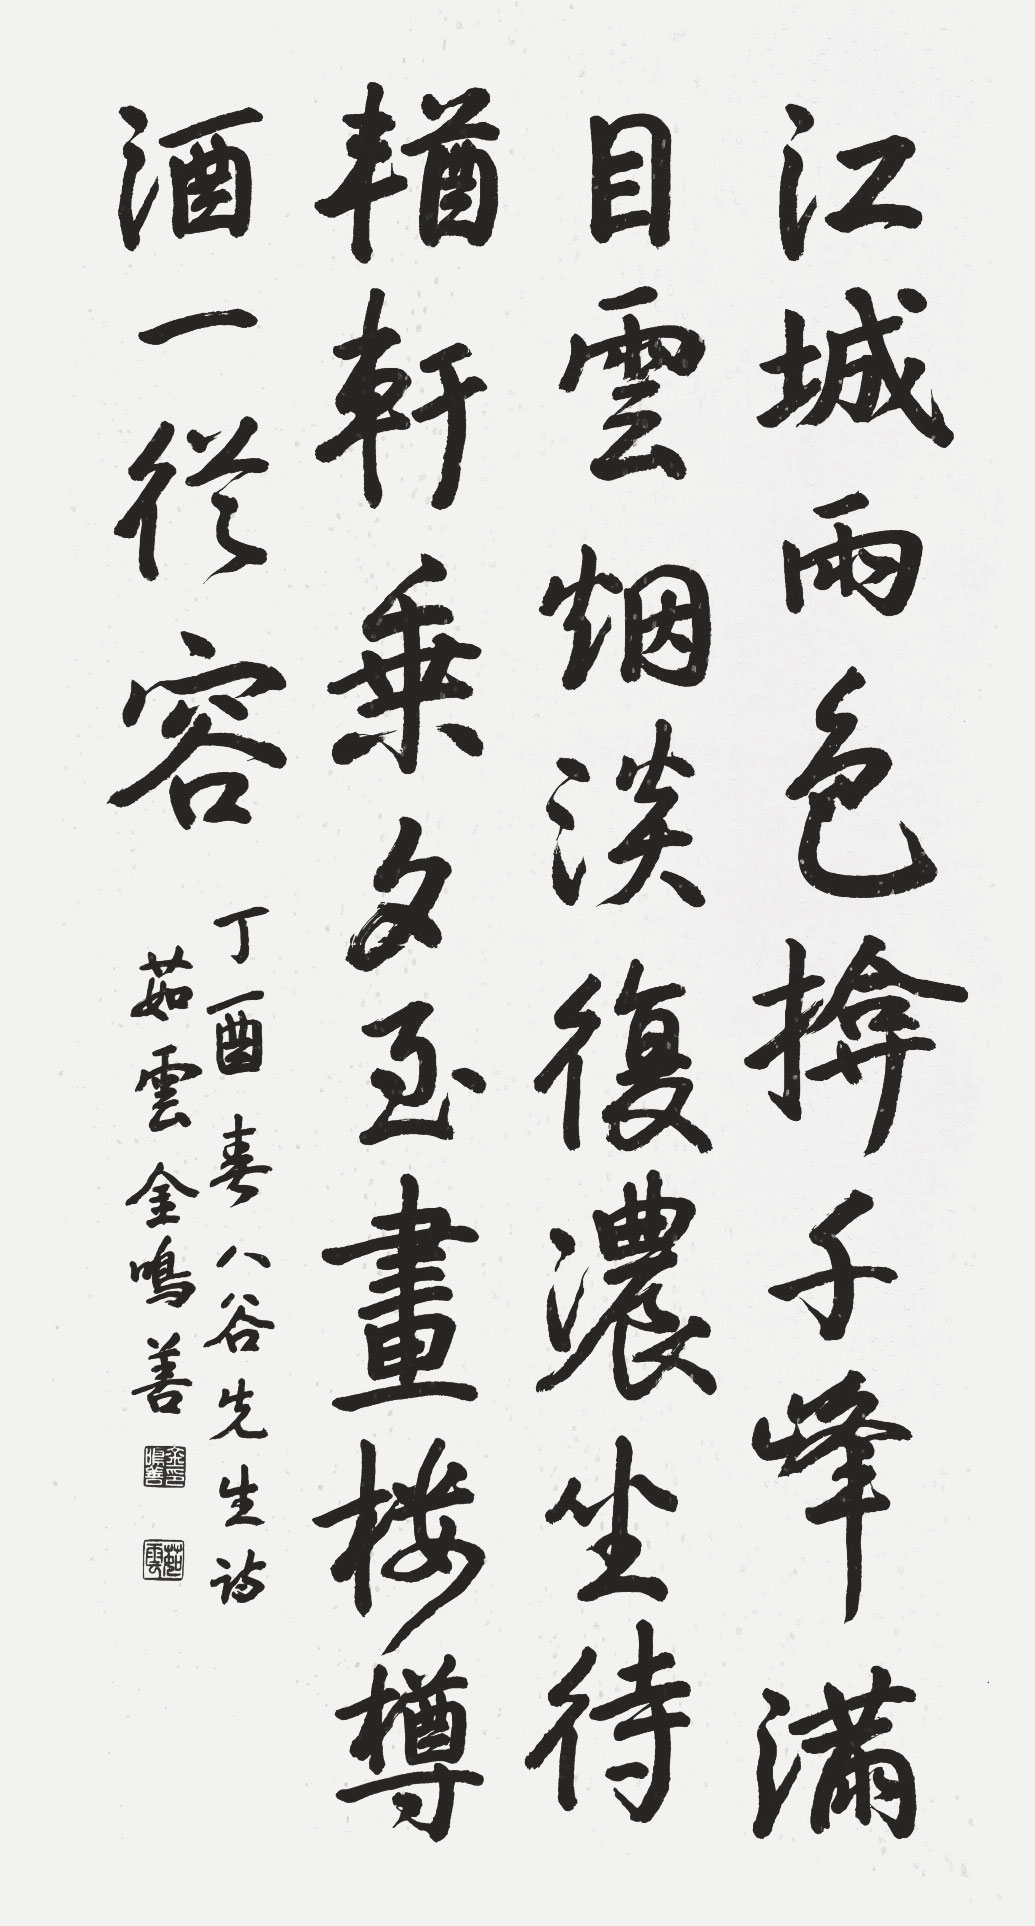 江城雨色揜千峰滿
目雲烟淡復濃坐待
輶軒乘夕至畫樓樽
酒一從容
丁酉春八谷先生詩
茹雲金鳴善
金印鳴善
茹雲